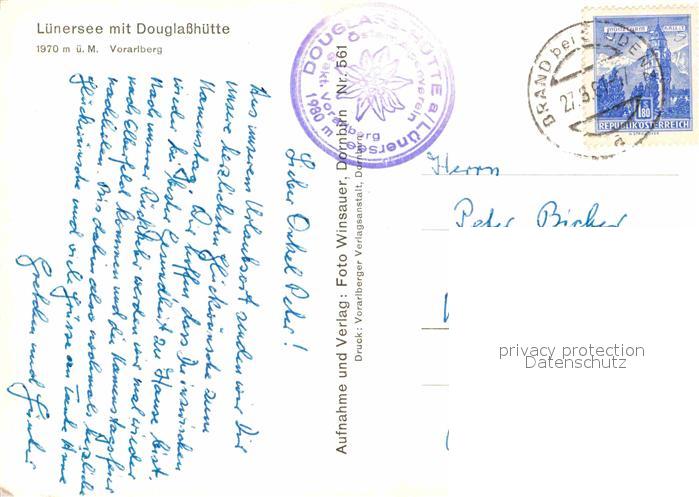 Lünersee mit Douglaßhütte
1970 m ü. M. Vorarlberg
DOUGLASS-HÜTTE a/Lünersee
Österr. Alpenverein
Sekt. Vorarlberg
1980 m
BRAND bei BLUDENZ
27.8.
1.80
REPUBLIK ÖSTERREICH
Lieber Onkel Peter!
Aus unserem Urlaubsort senden wir Dir
unsere herzlichsten Glückwünsche zum
Namenstag. Wir hoffen dass Du inzwischen
wieder bei bester Gesundheit zu Hause bist.
Nach unserer Rückkehr werden wir mal wieder
nach Elberfeld kommen und die Namenstagsfeier
nachholen. Bis dahin also nochmals herzliche
Glückwünsche und viele Grüsse an Tante Anne
Gretchen und Günter
Aufnahme und Verlag: Foto Winsauer, Dornbirn Nr. 561
Druck: Vorarlberger Verlagsanstalt, Dornbirn
Herrn
Peter
privacy protection
Datenschutz